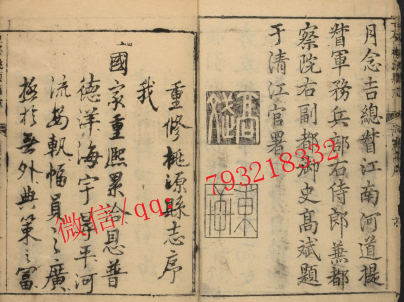 月念吉總督江南河道提
督軍務兵部右侍郎兼都
察院右副都御史高斌題
于清江官署
重修桃源縣志序
我
國家重熙累洽恩普
德洋海宇昇平河
流安軌幅員之廣
極於無外典策之富
微信/qq：793218332